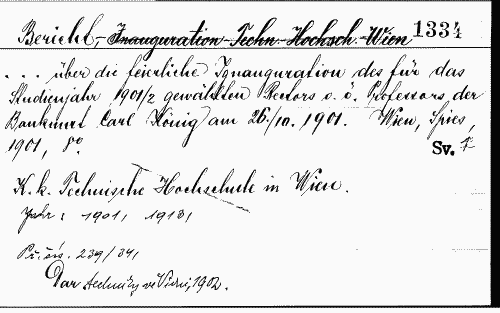 Bericht, - Inauguration - Techn - Hochsch. - Wien 1334
... über die feierliche Ignauguration des für das
Studienjahr 1901/2 gewählten Rectors o. ö. Professors der
Baukunst Carl König am 26./10. 1901. Wien, Spies,
1901, 8º. Sv.
K. k. Technische Hochschule in Wien.
Jahr: 1901, 1913,
Př. čís. 239/34,
Dar techniky ve Vídni, 1902.